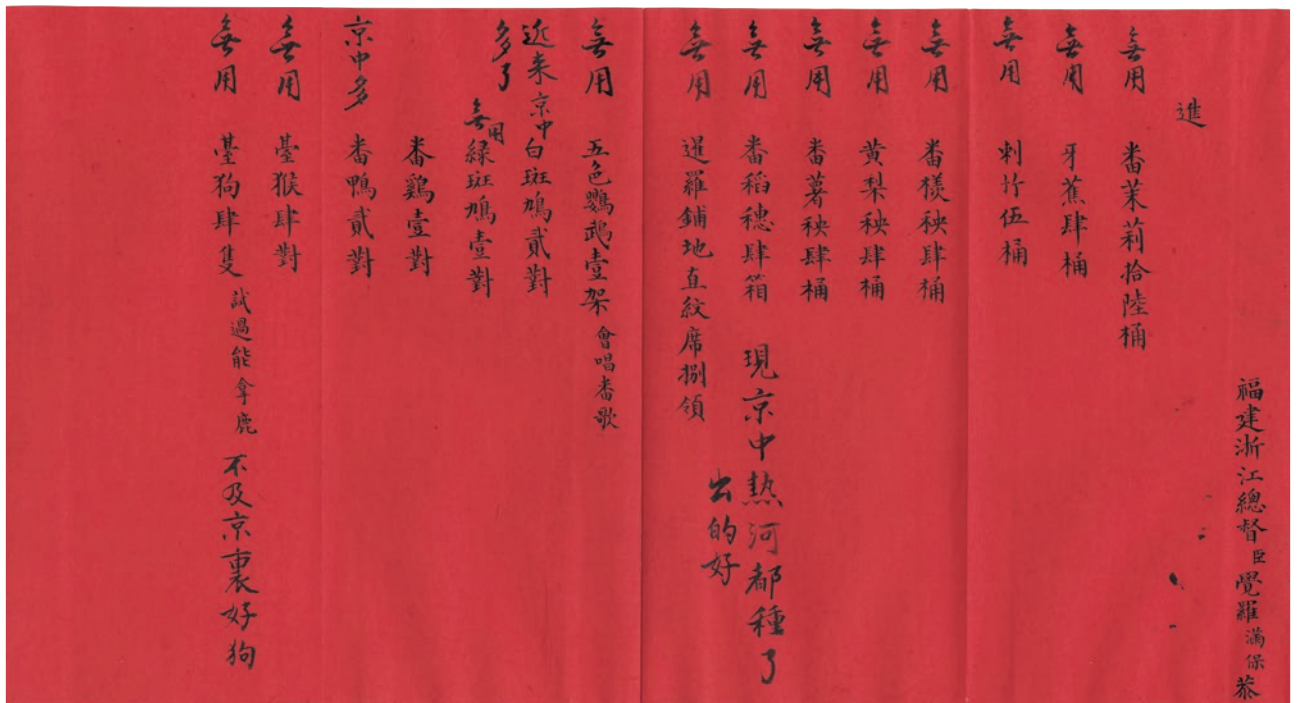 福建浙江總督臣覺羅滿保恭
進
無用 番茉莉拾陸桶
無用 牙蕉肆桶
無用 刺竹伍桶
無用 番檨秧肆桶
無用 黄梨秧肆桶
無用 番薯秧肆桶
無用 番稻穗肆箱 現京中熱河都種了
出的好
無用 暹羅鋪地直紋席捌領
無用 五色鸚武壹架 會唱番歌
近来京中
多了
白斑鳩貳對
無用 緑斑鳩壹對
番鷄壹對
京中多 番鴨貳對
無用 臺猴肆對
無用 臺狗肆隻 試過能拿鹿 不及京裏好狗